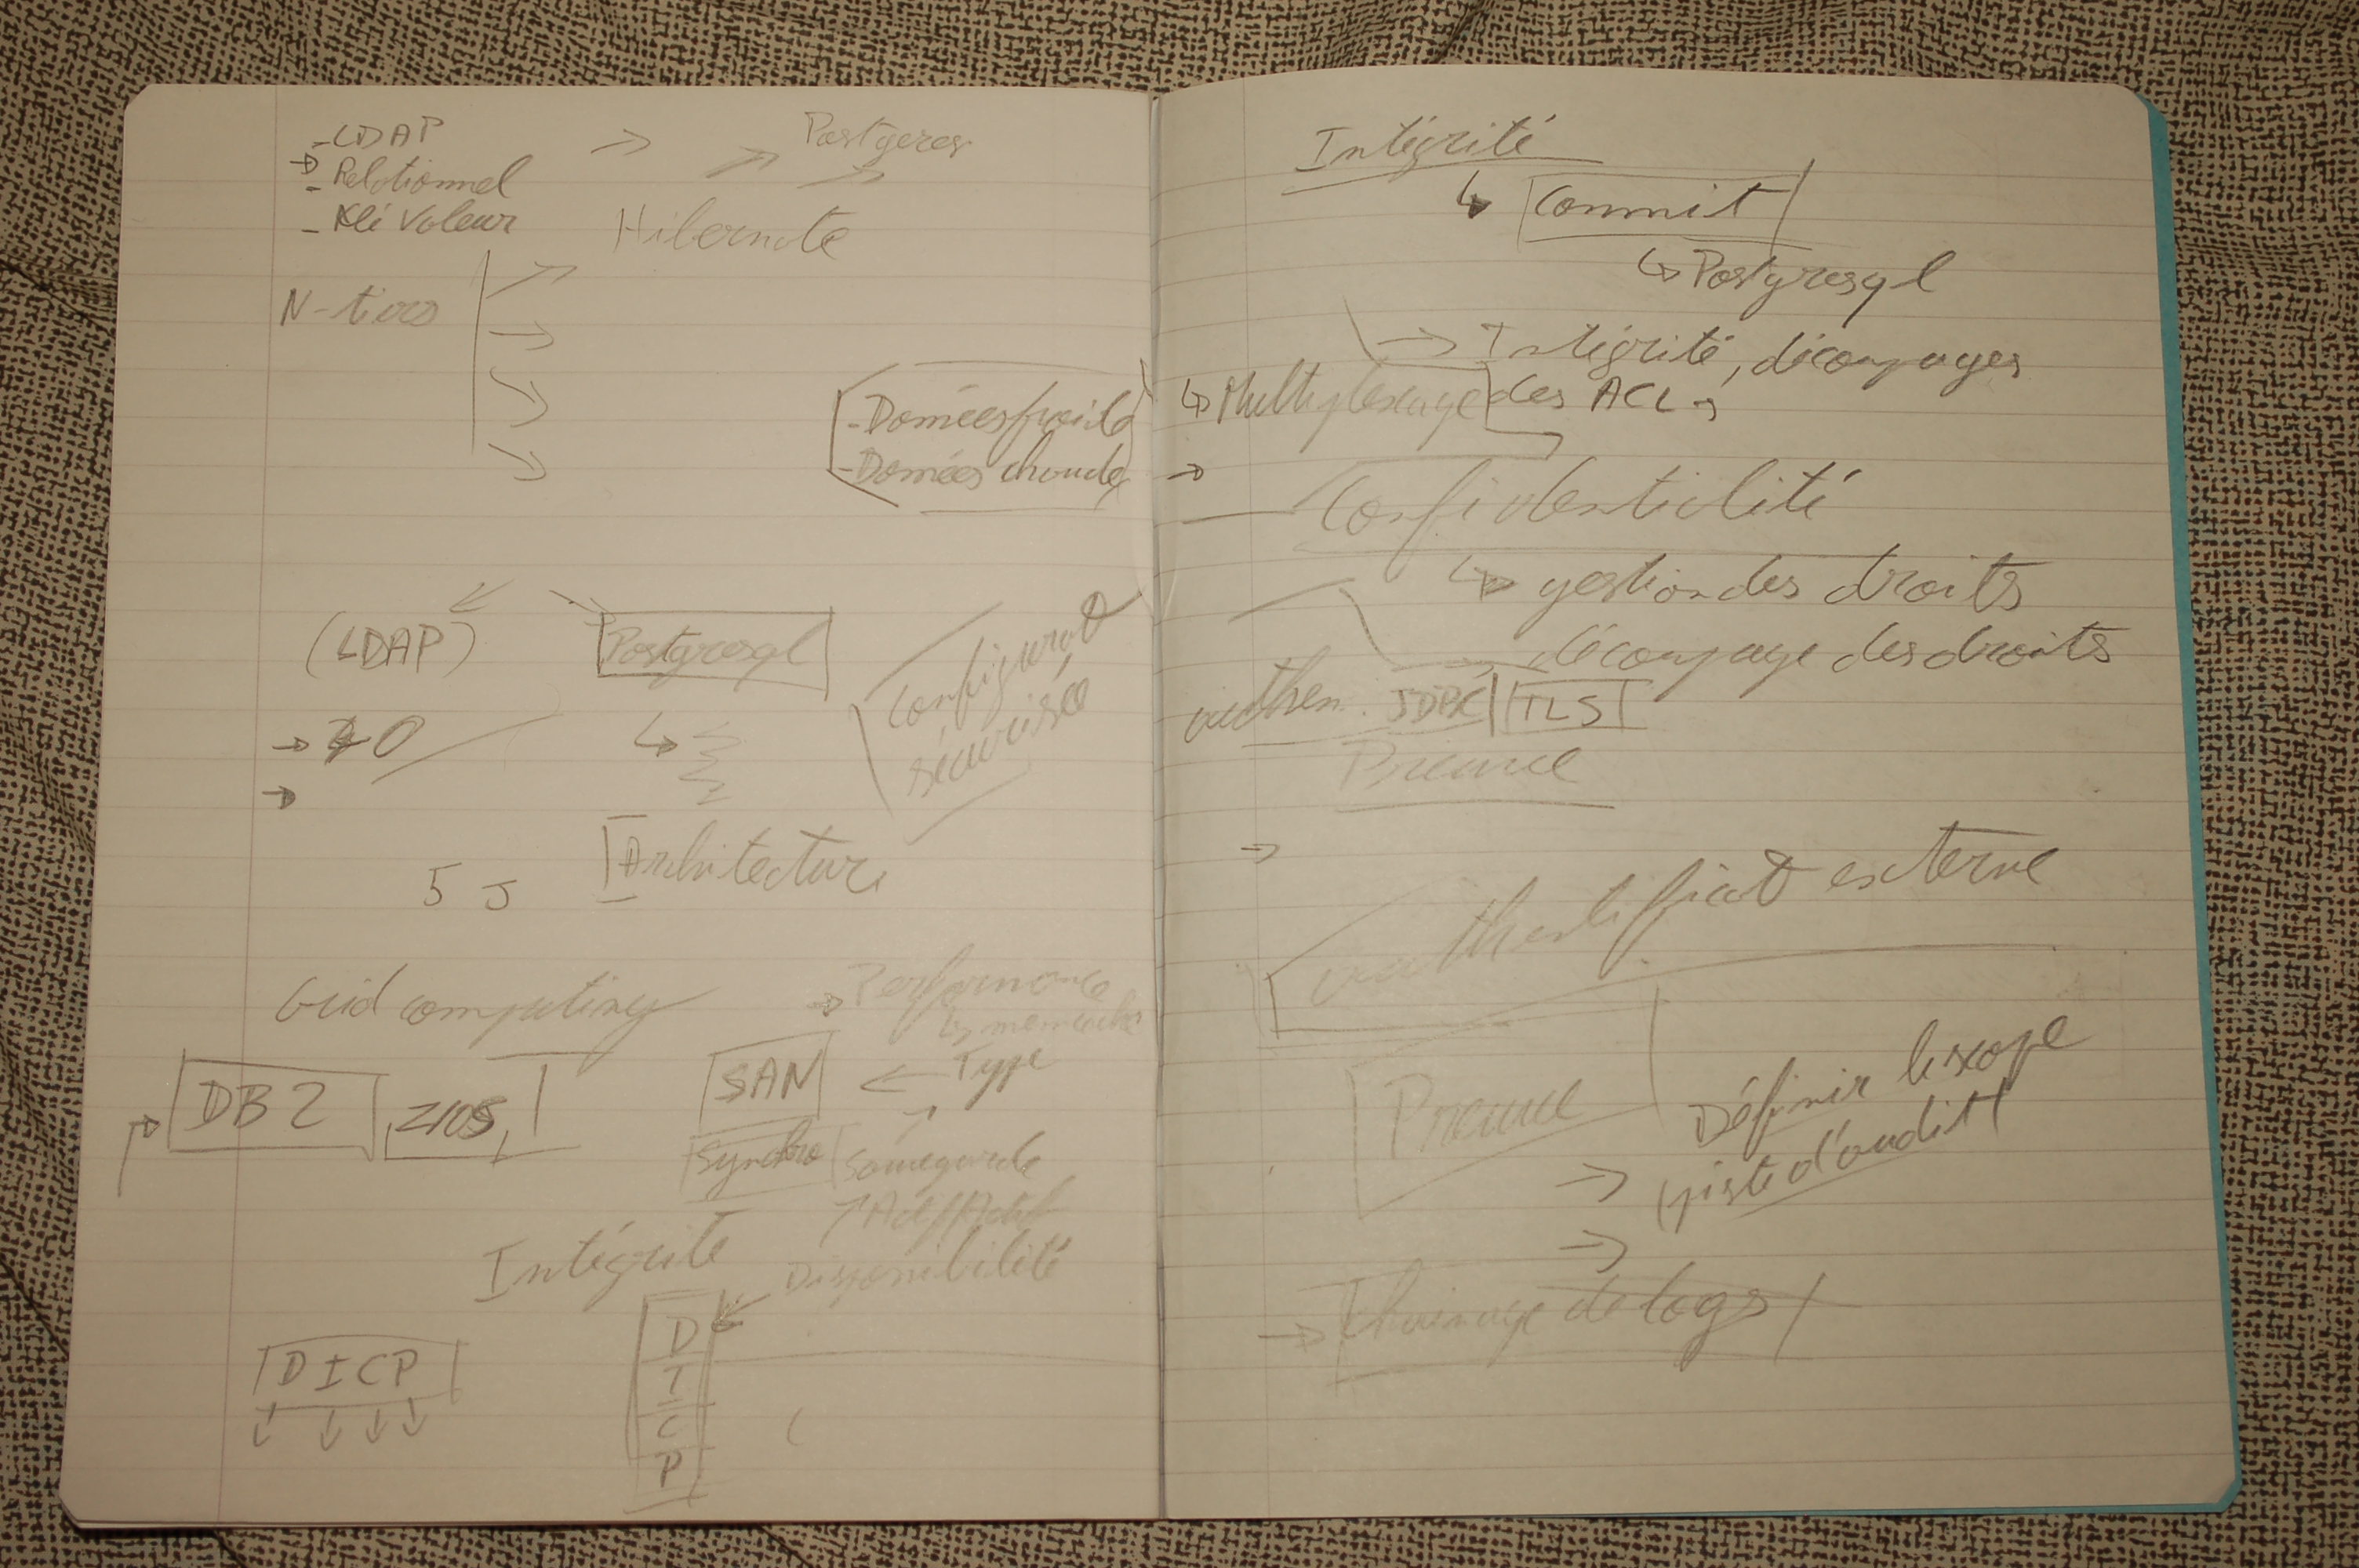 - LDAP
- Relationnel
- Klé Valeur
Postgeres
Hibernate
N-tiers
- Données froide
- Données chaude
(LDAP)
Postgresql
Configurat
sécurisée
Architecture
5 J
Grid computing
Performance
Type
DB2 z/OS
SAN
Synchro
Sauvegarde
Actif/Actif
Intégrité
Disponibilité
DICP
D
I
C
P
Intégrité
Commit
Postgresql
Intégrité, découpages
Multiplexage des ACL
Confidentialité
gestion des droits
découpage des droits
authen. TLS
Preuve
authentificat externe
Preuve
Définir le scope
piste d'audit
Chainage de logs